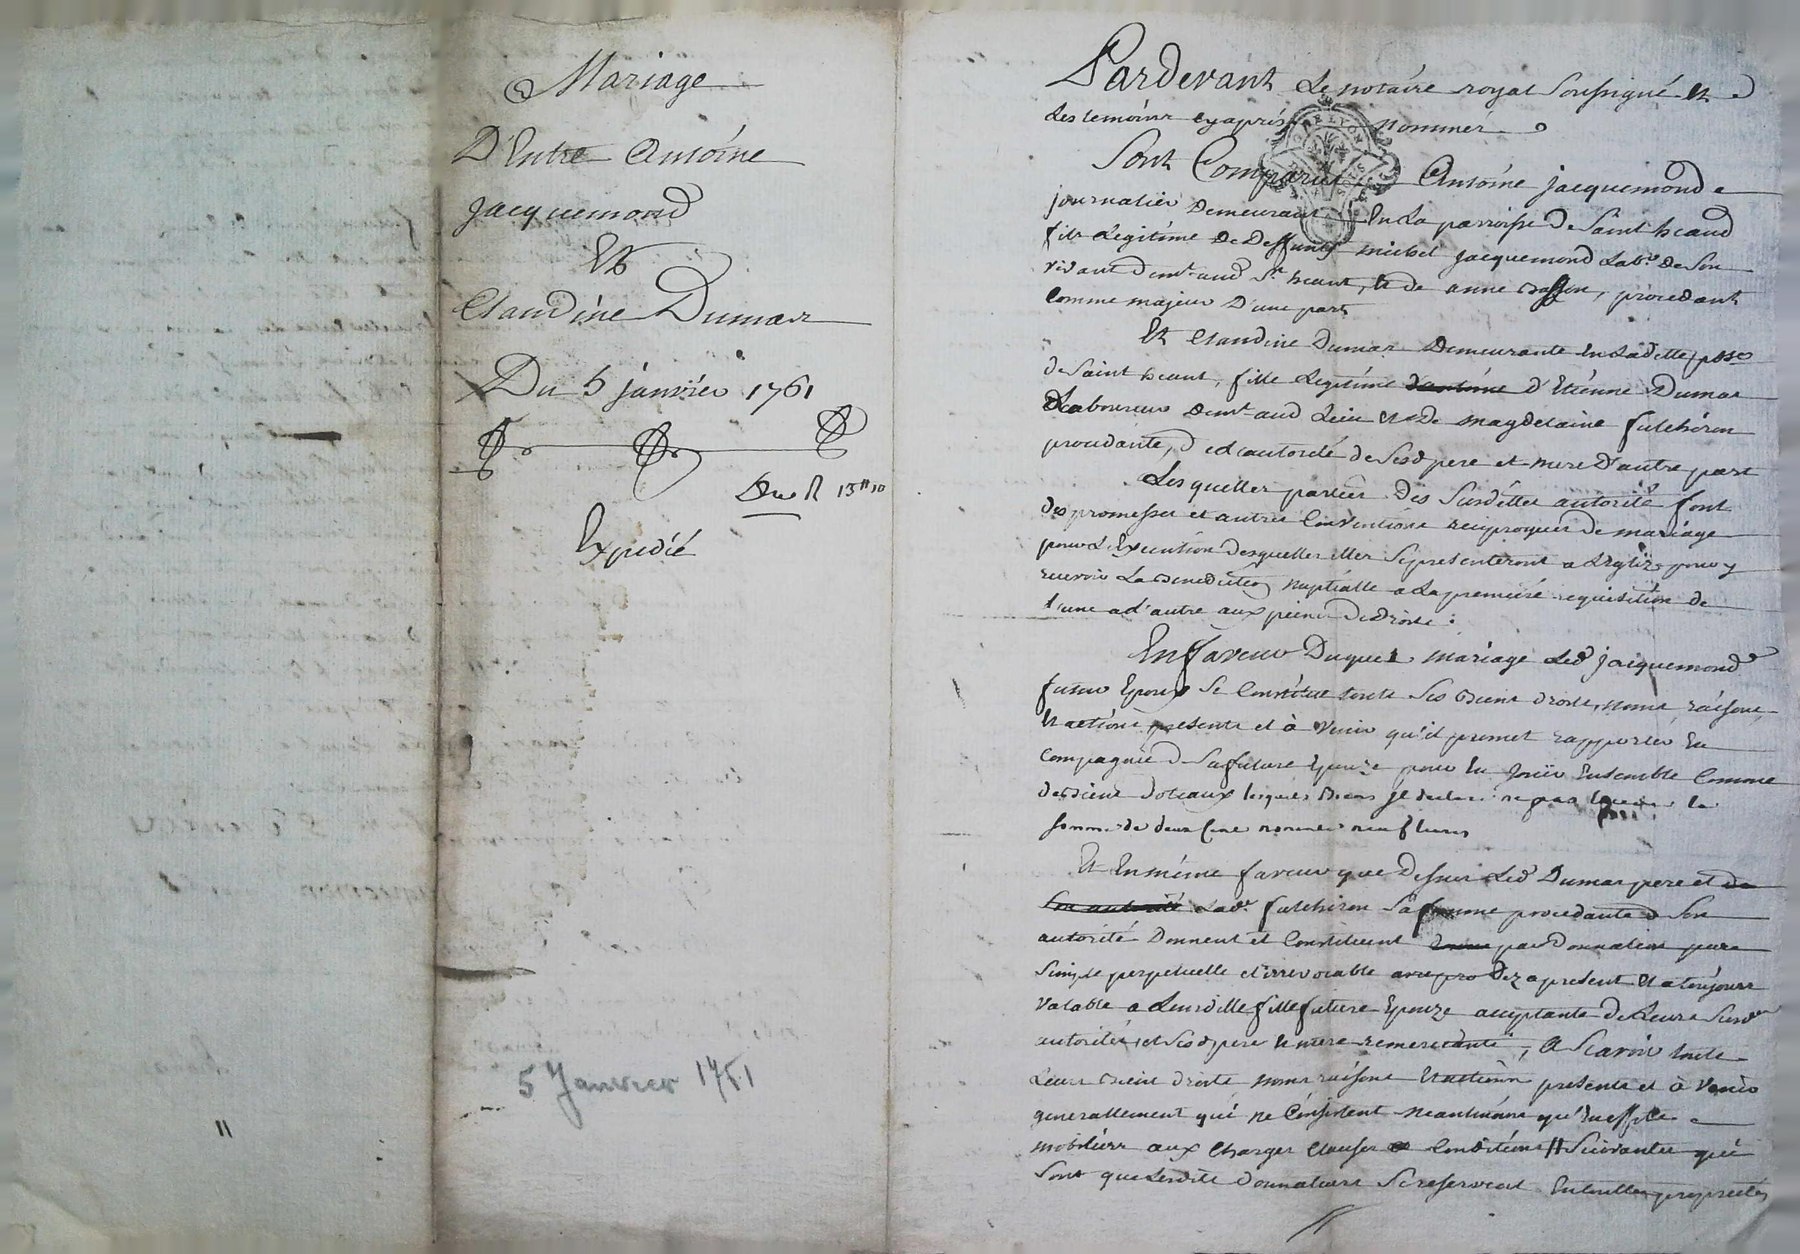 Mariage
D'Entre Antoine
Jacquemond
Et
Claudine Dumas
Du 5 janvier 1761
13
Expedié
5 Janvier 1761
Pardevant Le notaire royal soussigné et
Les temoins cy apres nommés
Sont Comparus Antoine jacquemond
journalier Demeurant En La parroisse De Saint heand
fils Legitime De Deffunt michel jacquemond Lab.r De Son
vivant dem.t aud S.t heant, et de anne Basson, procedant
Comme majeur D'une part
Et Claudine Dumas Demeurante En Laditte psse
de Saint heant, fille Legitime d'Etienne Dumas
Laboureur Dem.t aud Lieu et De magdelaine fulchiron
procedante, d cd autorité de Sesd pere et mere D'autre part
Les quelles parties Des Susdittes autorité font
Des promesses et autres Conventions reciproques De mariage
pour L'Execution desquelles elles Se presenteront a L'eglize pour y
recevoir La Benediction nuptialle a La premiere requisition de
L'une a d'autre aux peines De Droits :
En faveur Duquel mariage Led jacquemond
futur Epoux Se Constitue touts Ses Biens droits, noms, raisons,
Et actions presents et à venir qu'il promet rapporter En
Compagnie D Sa future Epouze pour En Jouir Ensemble Comme
de Biens dotaux lesquels Biens Je declare ne pas la
somme de deux cent nonente neuf livres
Et En même faveur que Dessus Led Dumas pere et de
Son autorité Lad.e fulchiron Sa femme procedante D Son
autorité Donnent et Constituent par Donnation pure
Simple perpetuelle et irrevocable Dez a present Et a toujours
valable a Leurditte fille future Epouze acceptante De Leurs Susd
autorités, et Sesd pere Et mere remerciante, A Scavoir touts
Leurs Biens droits noms raisons Et actions presents et à venir
generallement qui ne Consistent neantmoins qu'En effets
mobiliers aux Charges Clauses Conditions Suivantes qui
Sont que Lesdits Donnateurs Se reservent